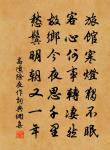 旅館寒燈獨不眠
客心何事轉凄然
故鄉今夜思千里
愁鬢明朝又一年
高適除夜作詞典網書